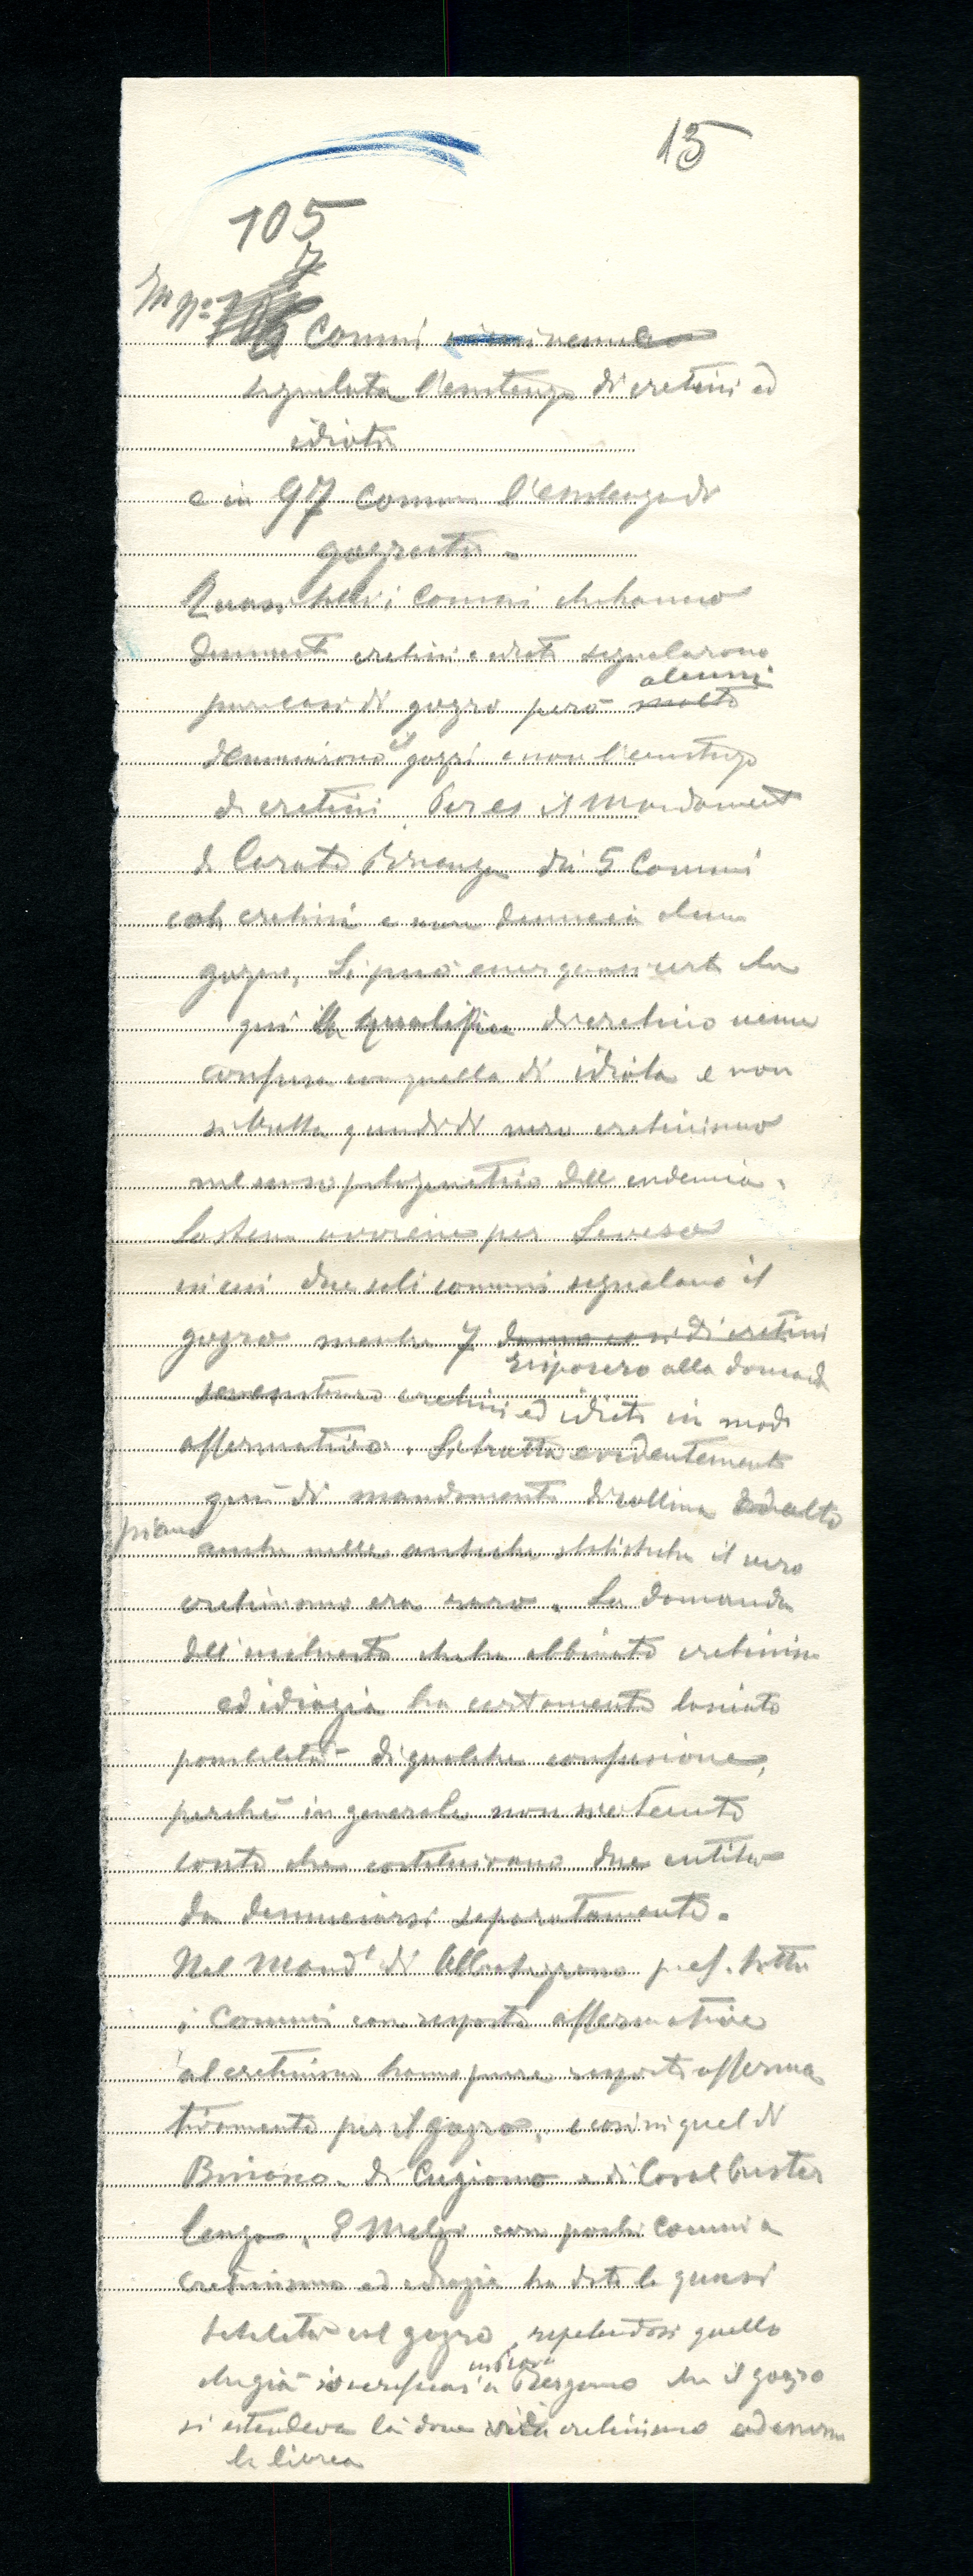 15
105
7
In Nº Comuni
segnalata l'esistenza di cretini ed
idioti
e in 97 comuni l'esistenza di
gozzuti.
Quasi tutti i comuni che hanno
denunciato cretini e idioti segnalarono
alcuni
pure casi di gozzo però molti
denunciarono il gozzi e non l'esistenza
di cretini. Per es il Mandament
di Carate Brianza dà 5 Comuni
con cretini e non denuncia alcun
gozzo. Si può esser quasi certi che
qui la qualifica di cretino venne
confusa con quella di idiota e non
si tratta quindi di vero cretinismo
nel senso patogenetico dell endemia.
Lo stesso avviene per Seveso
in cui due soli comuni segnalano il
gozzo mentre 7 danno casi di cretini
risposero alla domand
se esistono cretini ed idioti in modo
affermativo. Si tratta evidentemente
qui di mandamenti di collina ed alto
piano
anche nelle antiche statistiche il vero
cretinismo era raro. La domanda
dell'inchiesta che ha abbinato cretinismo
ed idiozia ha certamente lasciato
possibilità di qualche confusione,
perché in generale non si è tenuto
conto che costituivano due entità
da denunciarsi separatamente.
Nel Mandt di Abbiategrasso p. es. tutti
i Comuni con risposte affermative
al cretinismo hanno pure risposto afferma
tivamente per il gozzo, e così in quel di
Binasco, di Cuggiono e di Casalpuster
lengo. E Melzi con pochi comuni a
cretinismo ed idiozia ha dato la quasi
totalità col gozzo, ripetendosi quello
che già si verificava in Bergamo che il gozzo
si estendeva là dove cretinismo ed
la livrea